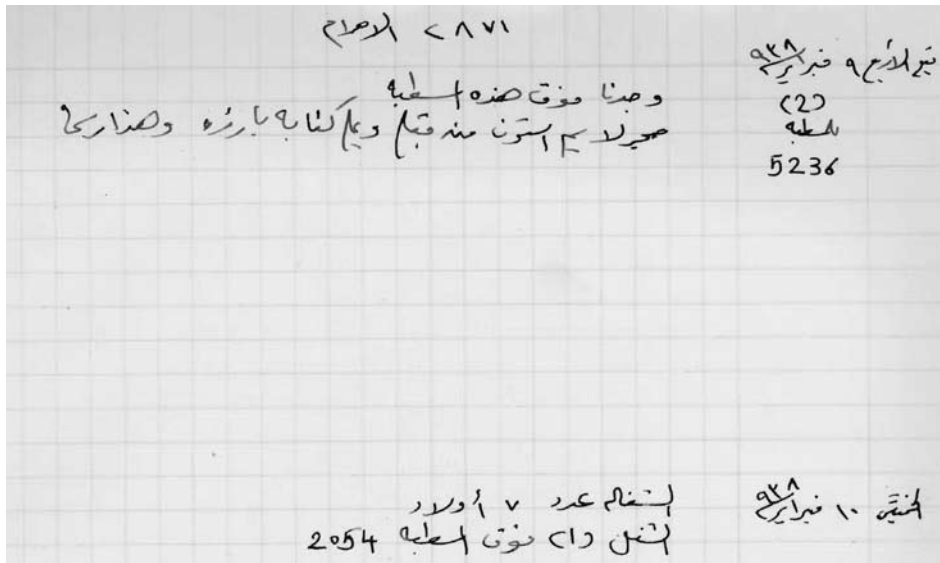 ٢٨٧١ الاهرام
تابع الأربع ٩ فبراير ٩٣٨
(2)
المسطبه
5236
وجدنا فوق هذه المسطبه
حجر لا يم استون منه قبلي وعليه كتابه بارزه وهذا رسمها
الخميس ١٠ فبراير ٩٣٨
الشغاله عدد ٧ أولاد
الشغل (١) فوق المسطبه 2054